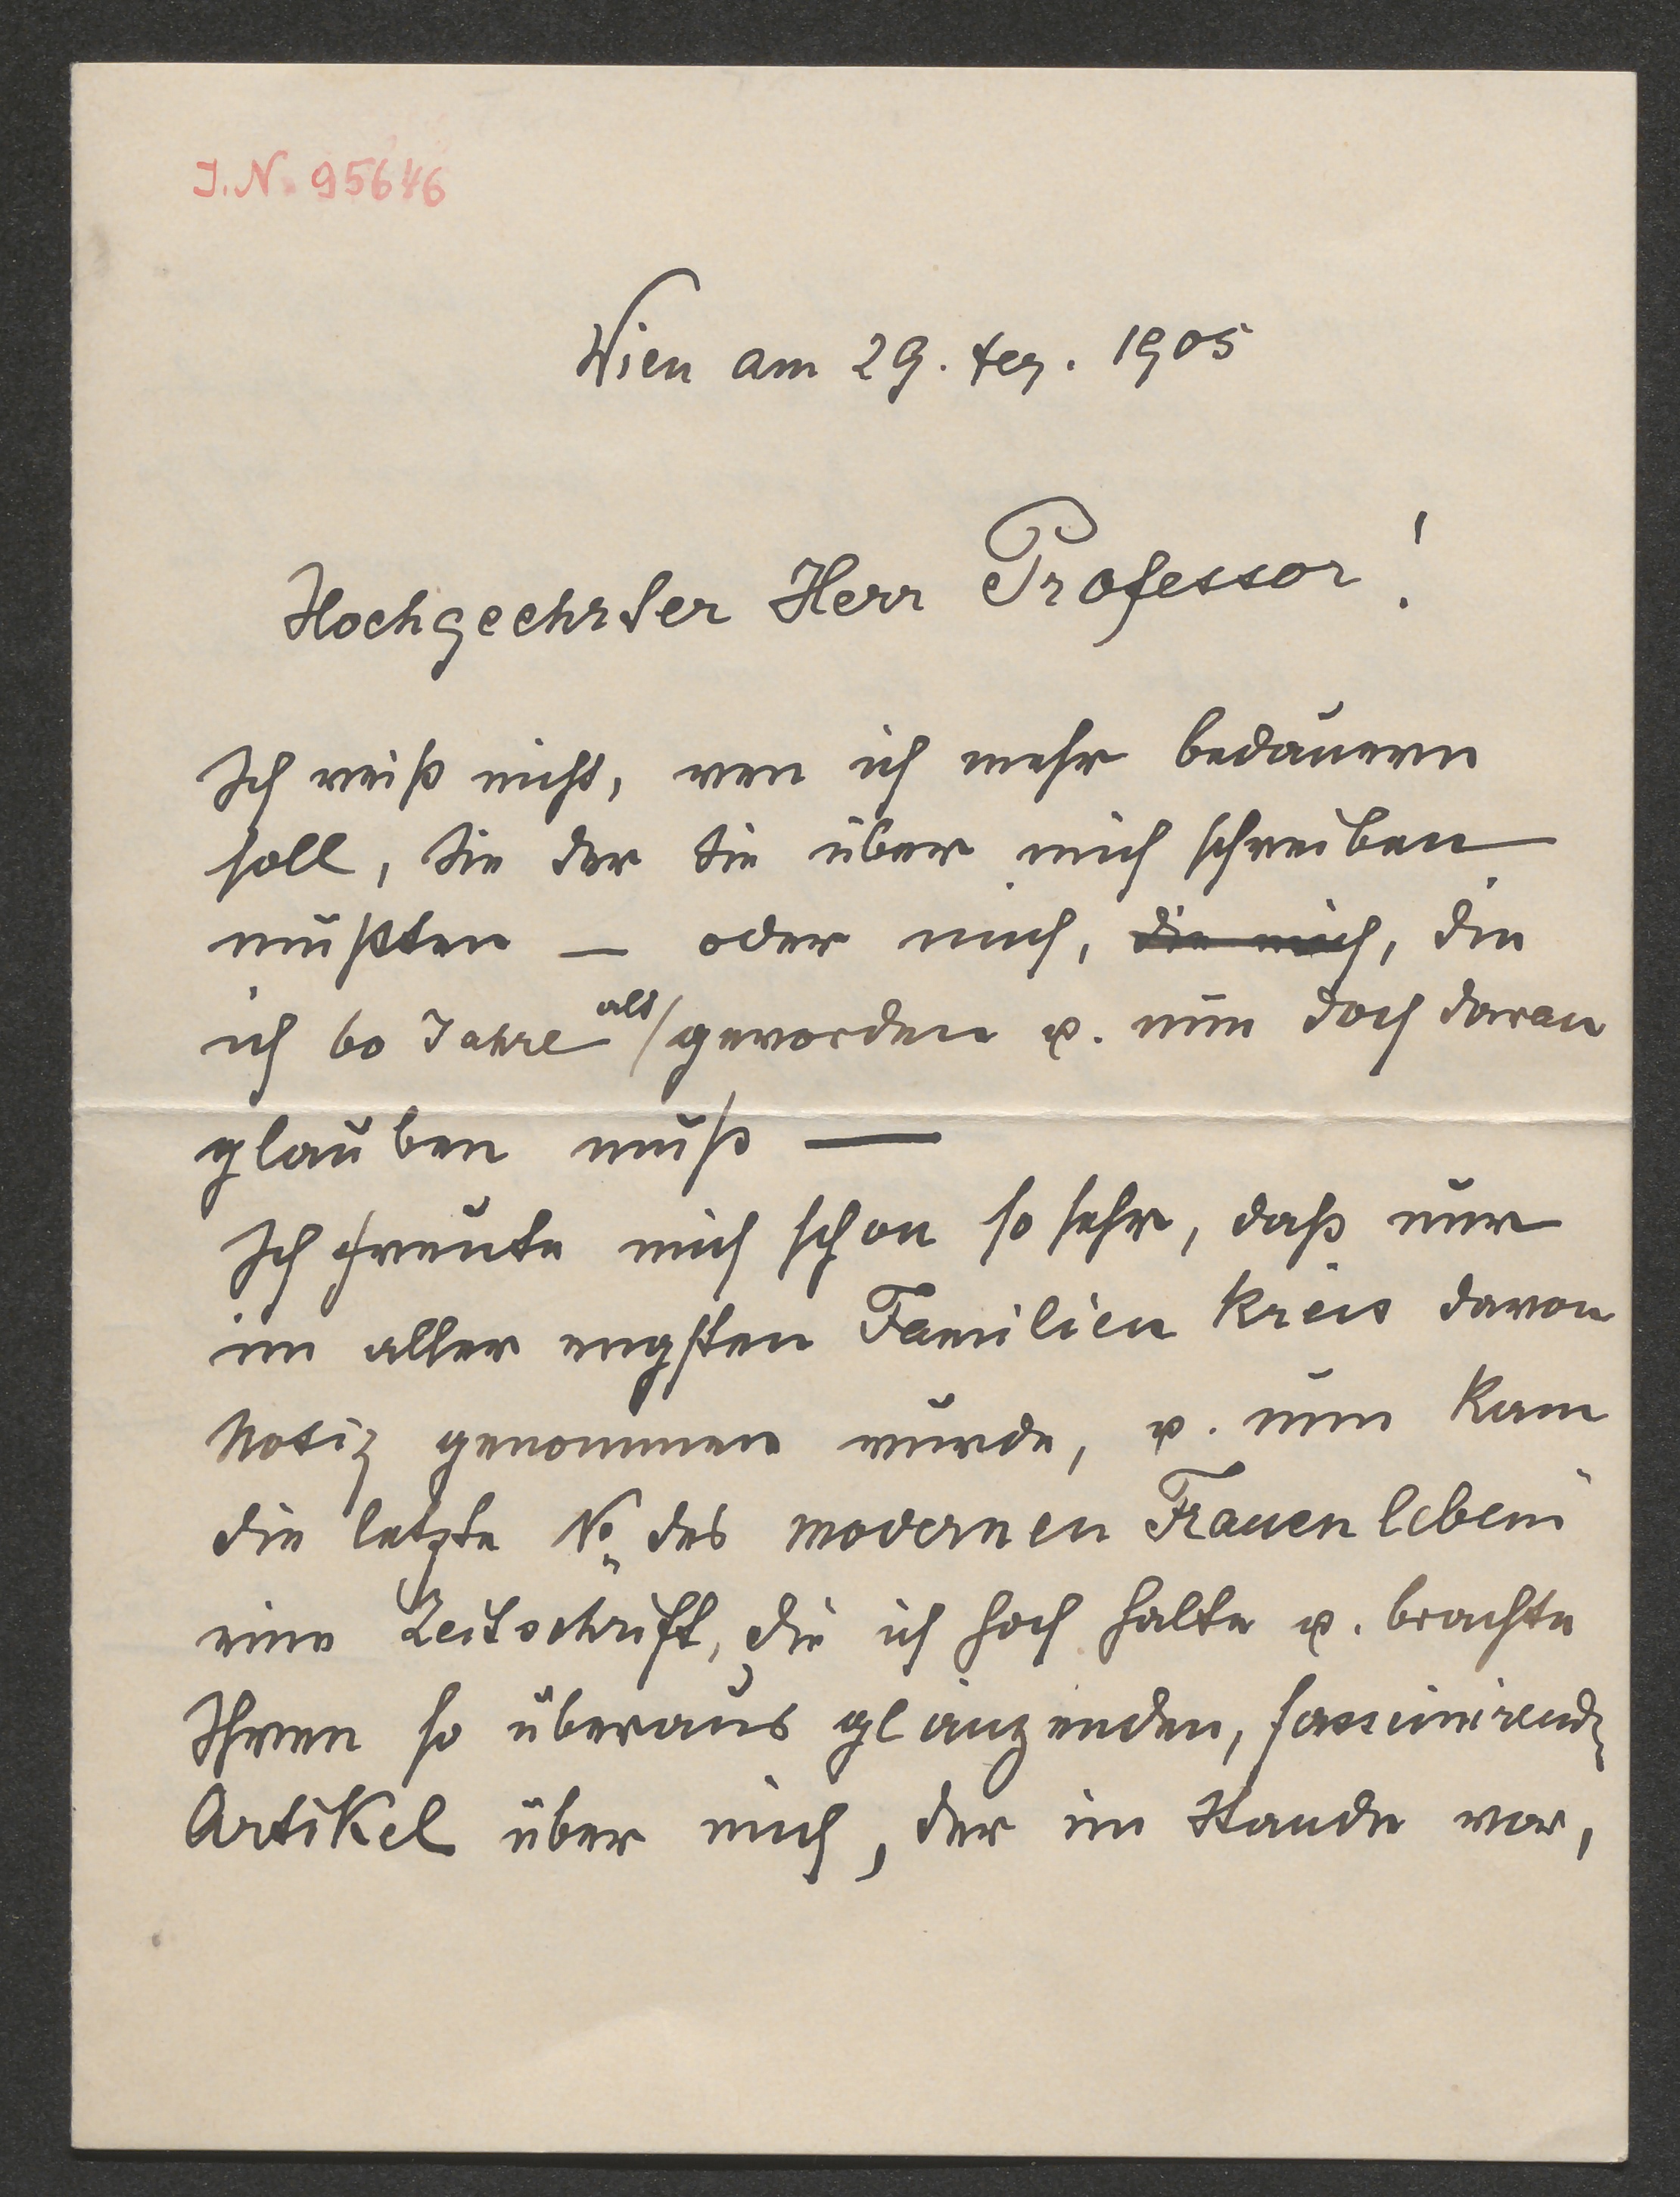 J.N. 95646
Wien am 29. Dez. 1905
Hochgeehrter Herr Professor!
Ich weiß nicht, wen ich mehr bedauern
soll, Sie der Sie über mich schreiben
mußten — oder mich, die mich, die
ich 60 Jahre alt geworden u. nun doch daran
glauben muß —
Ich freute mich schon so sehr, daß nur
im aller engsten Familien kreis davon
Notiz genommen wurde, u. nun kam
die letzte No des modernen Frauenlebens
eine Zeitschrift, die ich hoch halte u. brachte
Ihren so überaus glänzenden, fascinirend
Artikel über mich, der im Stande war,